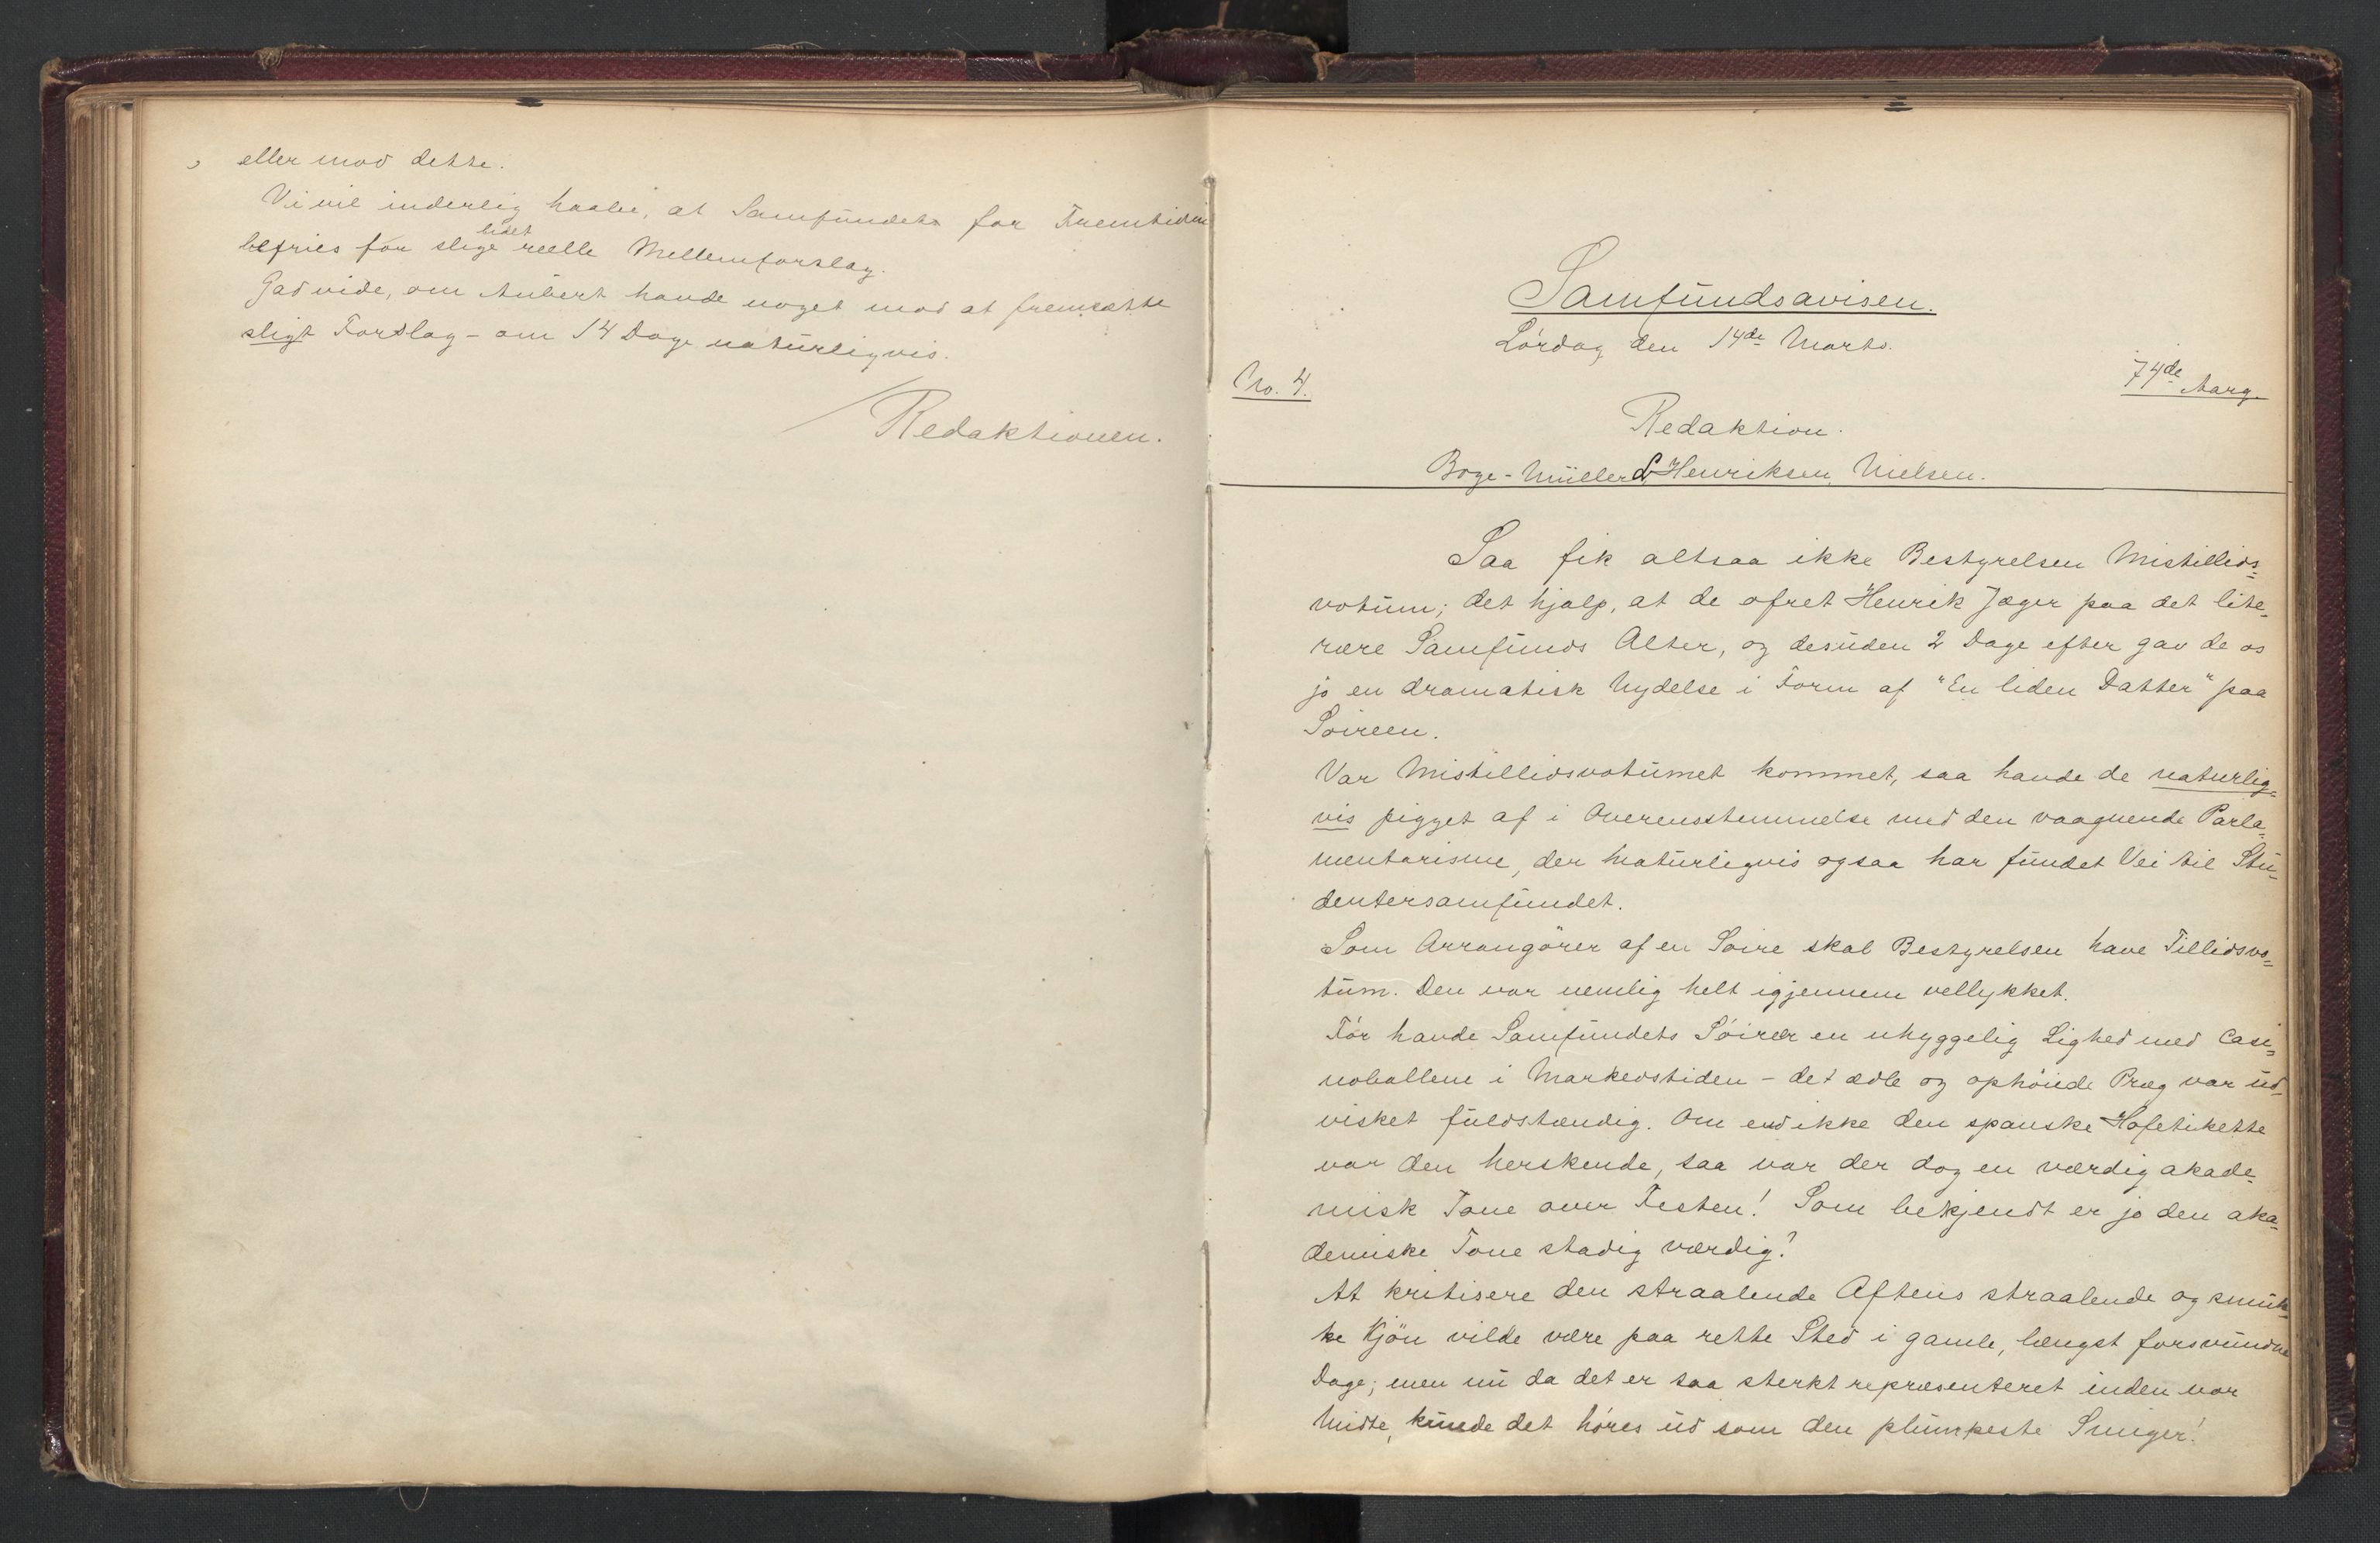 eller mod dette.
Vi vil inderlig haabe, at Samfundets for Fremtiden
lidet
befries for slige reelle Mellemforslag.
Gad vide, om Aubert havde noget mod at fremsætte
sligt Forslag - om 14 Dage naturligvis.
Redaktionen.
Samfundsavisen.
Lördag den 14de Marts.
No. 4.
74de Aarg.
Redaktion.
Boye-Müller & Henriksen, Nielsen.
Saa fik altsaa ikke Bestyrelsen Mistillids-
votum; det hjalp, at de ofret Henrik Jæger paa det lite-
rære Samfunds Alter, og desuden 2 Dage efter gav de os
jo en dramatisk Nydelse i Form af "En liden Datter" paa
Soireen.
Var Mistillidsvotumet kommet, saa havde de naturlig-
vis pigget af i Overensstemmelse med den vaagnende Parla-
mentarisme, der naturligvis ogsaa har fundet Vei til Stu-
dentersamfundet.
Som Arrangörer af en Soire skal Bestyrelsen have Tillidsvo-
tum. Den var nemlig helt igjennem vellykket.
För havde Samfundets Soireer en uhyggelig Lighed med Casi-
noballene i Markedstiden - det ædle og ophöiede Præg var ud-
visket fuldstændig. Om end ikke den spanske Hofetikette
var den herskende, saa var der dog en værdig akade-
misk Tone over Festen! Som bekjendt er jo den aka-
demiske Tone stadig værdig!
At kritisere den straalende Aftens straalende og smuk-
ke Kjön vilde være paa rette Sted i gamle, længst forsvundne
Dage; men nu da det er saa sterkt repræsenteret inden vor
Midte, kunde det höres ud som den plumpeste Smiger!